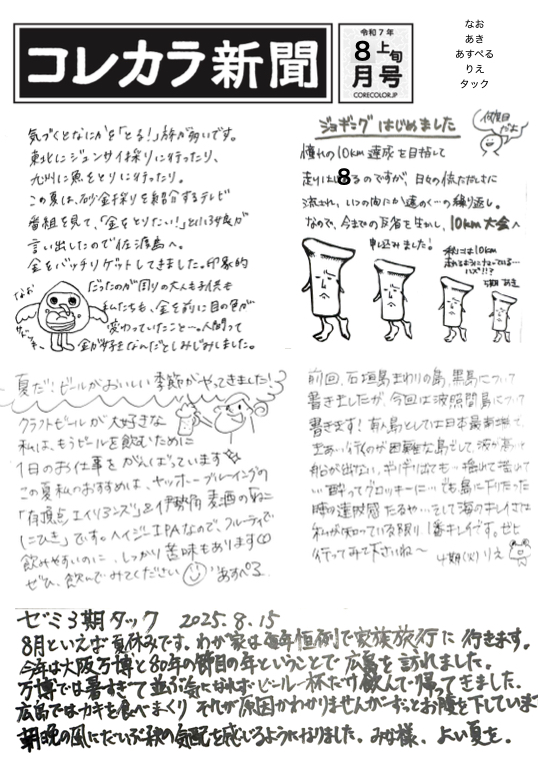 コレカラ新聞
令和7年
8上旬
月号
CORECOLOR.JP
なお
あき
あすぺる
りえ
タック
気づくとなにかを「とる!」旅が多いです。
東北にジュンサイ採りに行ったり、
九州に魚をとりに行ったり。
この夏は、砂金採りを紹介するテレビ
番組を見て、「金をとりたい!」と
言い出したので佐渡島へ。
金をバッチリゲットしてきました。印象的
だったのが周りの大人も子供も
私たちも、金を前に目の色が
変わっていたこと〜。人間って
金が好きなんだとしみじみしました。
なお
ジョギングはじめました
何度目だよ
憧れの10km達成を目指して
走りはじ8るのですが、日々の
流され、いつの間にか遠のく…の繰り返し。
なので、今までの反省を生かし、10km大会へ
申し込みました!
秋には10km
走れるようになっている…
ハズ!!?
5期 あき
夏だ!ビールがおいしい季節がやってきました!
クラフトビールが大好きな
私は、もうビールを飲むために
1日のお仕事をがんばっています
この夏私のおすすめは、ヤッホーブルーイングの
「有頂天エイリアンズ」&伊勢角麦酒の「ねこ
にひき」です。ヘイジーIPAなので、フルーティで
飲みやすいのに、しっかり苦味もあります
ぜひ、飲んでみてください あすぺる
前回、石垣島まわりの島、黒島について
書きましたが、今回は波照間島について
書きます!有人島としては日本最南端で、
まぁ…行くのが困難な島として、波が高け
船が出ない、ギリギリはでもっ揺れて揺れて
…酔ってグロッキーに…でも島に下りた
時の達成感たるや…そして海のキレイさは
私が知っている限り、1番キレイです。ぜひ
行ってみて下さいね〜 4期(火)りえ
ゼミ3期タック 2025.8.15
8月といえば夏休みです。わが家は毎年恒例で家族旅行に行きます。
今年は大阪万博と80年の節目の年ということで広島を訪れました。
万博では暑すぎて並ぶ気になれずビール一杯だけ飲んで帰ってきました。
広島ではカキを食べまくり それが原因かわかりませんがずっとお腹を下していま
朝晩の風にだいぶ秋の気配を感じるようになりました。みな様、よい夏を。